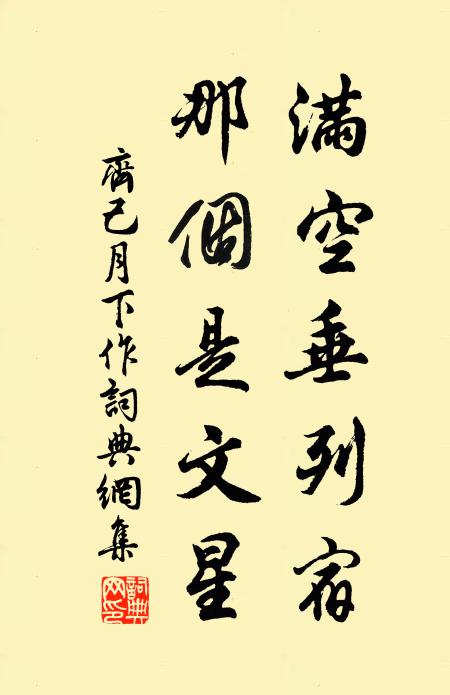 滿空垂列宿
那個是文星
齊己月下作詞典網集
詞典網印